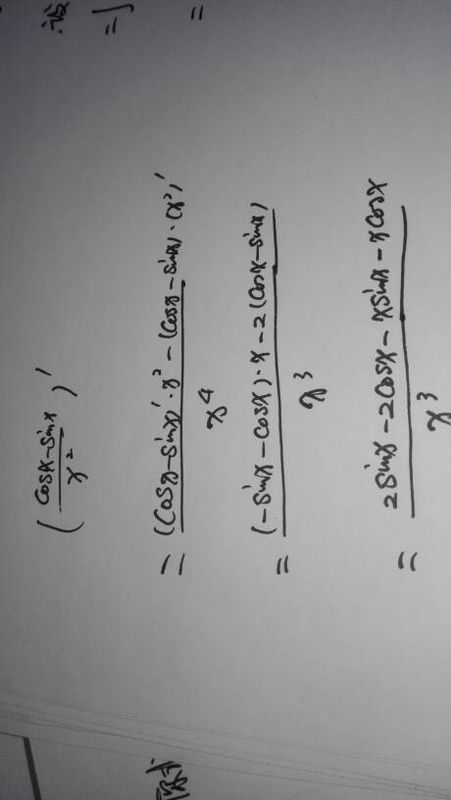 ( \frac{cosx-sinx}{x^2} )'
= \frac{(cosx-sinx)'·x^2-(cosx-sinx)·(x^2)'}{x^4}
= \frac{(-sinx-cosx)·x-2(cosx-sinx)}{x^3}
= \frac{2sinx-2cosx-xsinx-xcosx}{x^3}